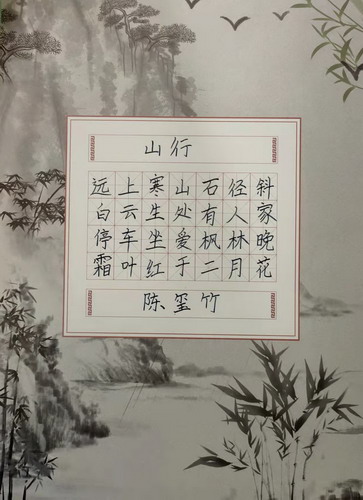 山行
远上寒山石径斜
白云生处有人家
停车坐爱枫林晚
霜叶红于二月花
陈玺竹